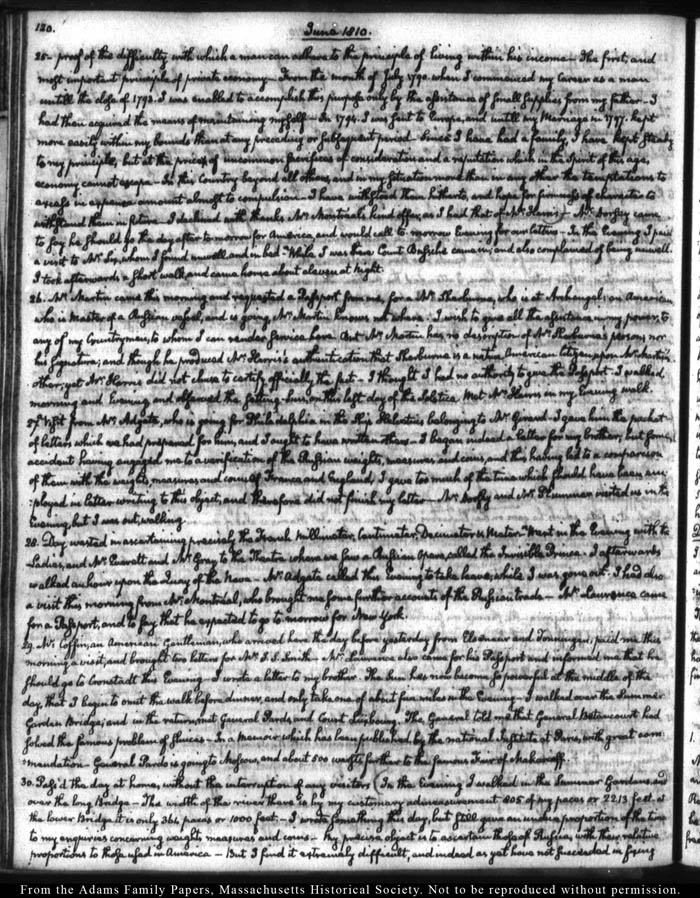 120.
June 1810.
25. proof of the difficulty with which a man can adhere to the principle of living within his income. The first, and
most important principle of private economy. From the month of July 1790. when I commenced my career as a man
untill the close of 1793. I was enabled to accomplish this purpose only by the assistance of small supplies from my father. I
had then acquired the means of maintaining myself. In 1794. I was sent to Europe, and untill my Marriage in 1797. kept
more easily within my bounds than at any preceding or subsequent period. Since I have had a family, I have kept steady
to my principle; but at the price of uncommon sacrifices of consideration and a reputation which in the Spirit of this age,
economy cannot escape. In this Country beyond all others, and in my situation more than in any other the temptations to
excess in expence amount almost to compulsion. I have withstood them hitherto, and hope for firmness of character to
withstand them in future. I declined with thanks Mr. Montréal's kind offer, as I had that of Mr. Harris. Mr. came
to say he should go the day after to-morrow for America, and would call to-morrow Evening for our letters. In the Evening I paid
a visit to Mr. Six, whom I found unwell and in bed. While I was there Count Bussche came in; and also complained of being unwell.
I took afterwards a short walk and came home about eleven at Night.
26. Mr. Martin came this morning and requested a Passport from me, for a Mr. Sherburne, who is at Archangel; an American
who is Master of a Russian vessel, and is going, Mr. Martin knows not where. I wish to give all the assistance in my power, to
any of my Countrymen, to whom I can render service here. But Mr. Martin has no description of Mr. Sherburne's person, nor
his signature; and though he produced Mr. Harris's authentication that Sherburne is a native American Citizen upon Mr. Martin's
other; yet Mr. Harris did not chuse to certify officially the fact. I thought I had no authority to give the Passport. I walked
morning and Evening and observed the setting-sun, on this last day of the Solstice. Met Mr. Harris in my Evening walk.
27. Visit from Mr. Adgate, who is going for Philadelphia in the Ship Helvetius belonging to Mr. Girard. I gave him the packet
of letters which we had prepared for him, and I ought to have written others. I began indeed a letter for my brother; but some
accident having engaged me to a verification of the Russian weights, measures and coins, and this having led to a comparison
of them with the weights, measures and coins of France and England, I gave too much of the time which should have been em-
ployed in letter-writing to this object, and therefore did not finish my letter. Mr. and Mr. Plummer visited us in the
Evening, but I was out, walking.
28. Day wasted in ascertaining precisely the French Millimeter, Centimeter, Decimeter & Meter. Went in the Evening with the
Ladies, and Mr. Everett and Mr. Gray to the Theatre where we saw a Russian Opera, called the Invisible Prince. I afterwards
walked an hour upon the Quay of the Neva. Mr. Adgate called this Evening to take leave, while I was gone out. I had also
a visit this morning from Mr. Montréal, who brought me some further accounts of the Russian trade. Mr. Lawrence came
for a Passport, and to say that he expected to go to-morrow for New York.
29. Mr. Coffin, an American Gentleman, who arrived here the day before yesterday from Elsineur and Tonningen, paid me this
morning a visit, and brought two letters for Mr. J. S. Smith. Mr. Lawrence also came for his Passport and informed me that he
should go to Cronstadt this Evening. I wrote a letter to my brother. The Sun has now become so powerful at the middle of the
day, that I begin to omit the walk before dinner, and only take one of about four miles in the Evening. I walked over the Summer
Garden Bridge, and in the return, met General Pardo, and Count Luxbourg. The General told me that General Betancourt had
solved the famous problem of sluices. In a Memoir which has been published by the national Institute at Paris, with great com-
mendation. General Pardo is going to Moscow, and about 500 wersts further to the famous Fair of Makarieff.
30. Pass'd the day at home, without the interruption of any visitors. In the Evening I walked in the Summer Gardens, and
over the long Bridge. The width of the river there is by my customary admeasurement 805 of my paces or 2213 feet. at
the lower Bridge it is only 364 paces or 1000 feet. I wrote something this day, but still gave an undue proportion of the time
to my enquiries concerning weights measures and coins. My precise object is to ascertain those of Russia, with their relative
proportions to those used in America. But I find it extremely difficult, and indeed as yet have not succeeded in fixing
From the Adams Family Papers, Massachusetts Historical Society. Not to be reproduced without permission.